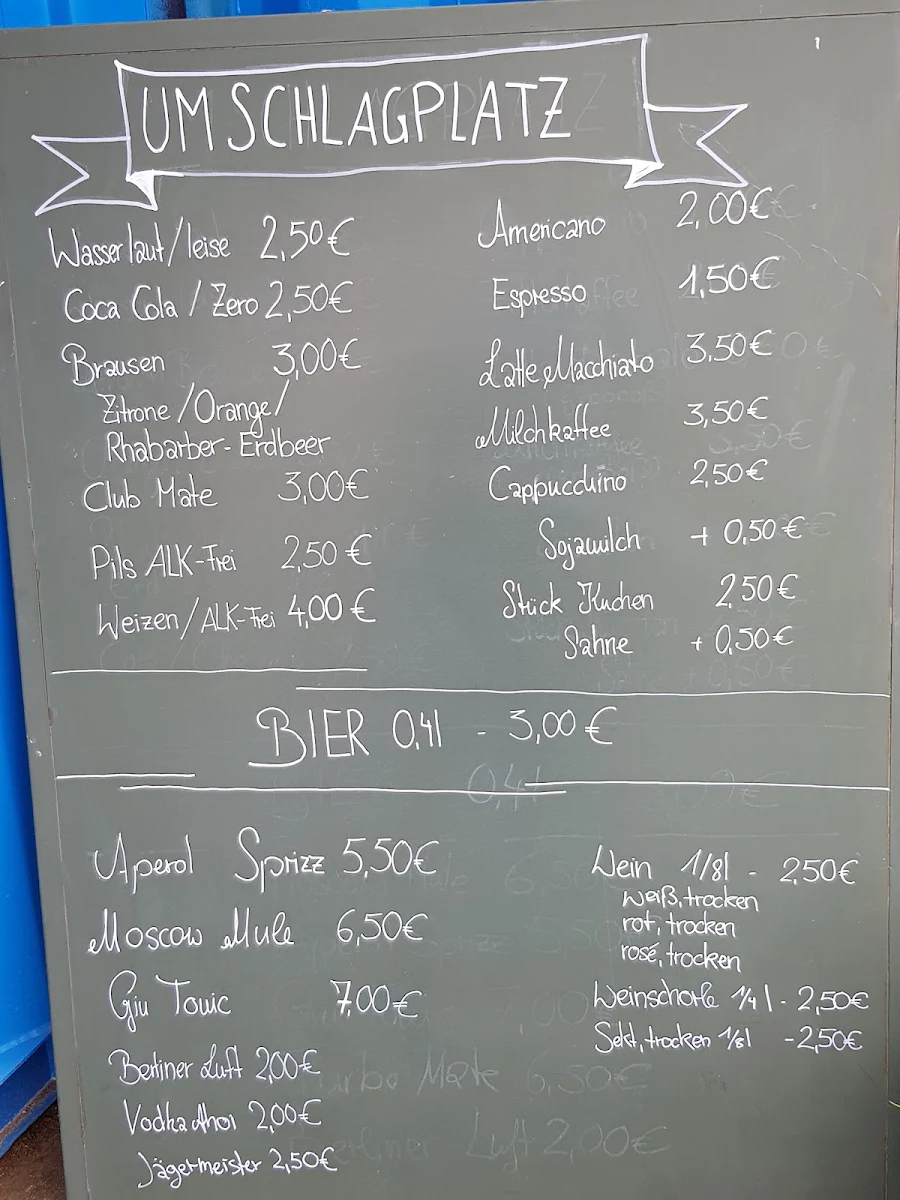 UMSCHLAGPLATZ
Wasser laut/leise 2,50€
Coca Cola / Zero 2,50€
Brausen 3,00€
Zitrone/Orange/
Rhabarber-Erdbeer
Club Mate 3,00€
Pils ALK-Frei 2,50€
Weizen/ALK-Frei 4,00€
Americano 2,00€
Espresso 1,50€
Latte Macchiato 3,50€
Milchkaffee 3,50€
Cappucchino 2,50€
Sojamilch + 0,50€
Stück Kuchen 2,50€
Sahne + 0,50€
BIER 0,4l - 3,00€
Aperol Sprizz 5,50€
Moscow Mule 6,50€
Gin Tonic 7,00€
Berliner Luft 2,00€
Vodka Ahoi 2,00€
Jägermeister 2,50€
Wein 1/8l - 2,50€
weiß, trocken
rot, trocken
rosé, trocken
Weinschorle 1/4l - 2,50€
Sekt, trocken 1/8l - 2,50€